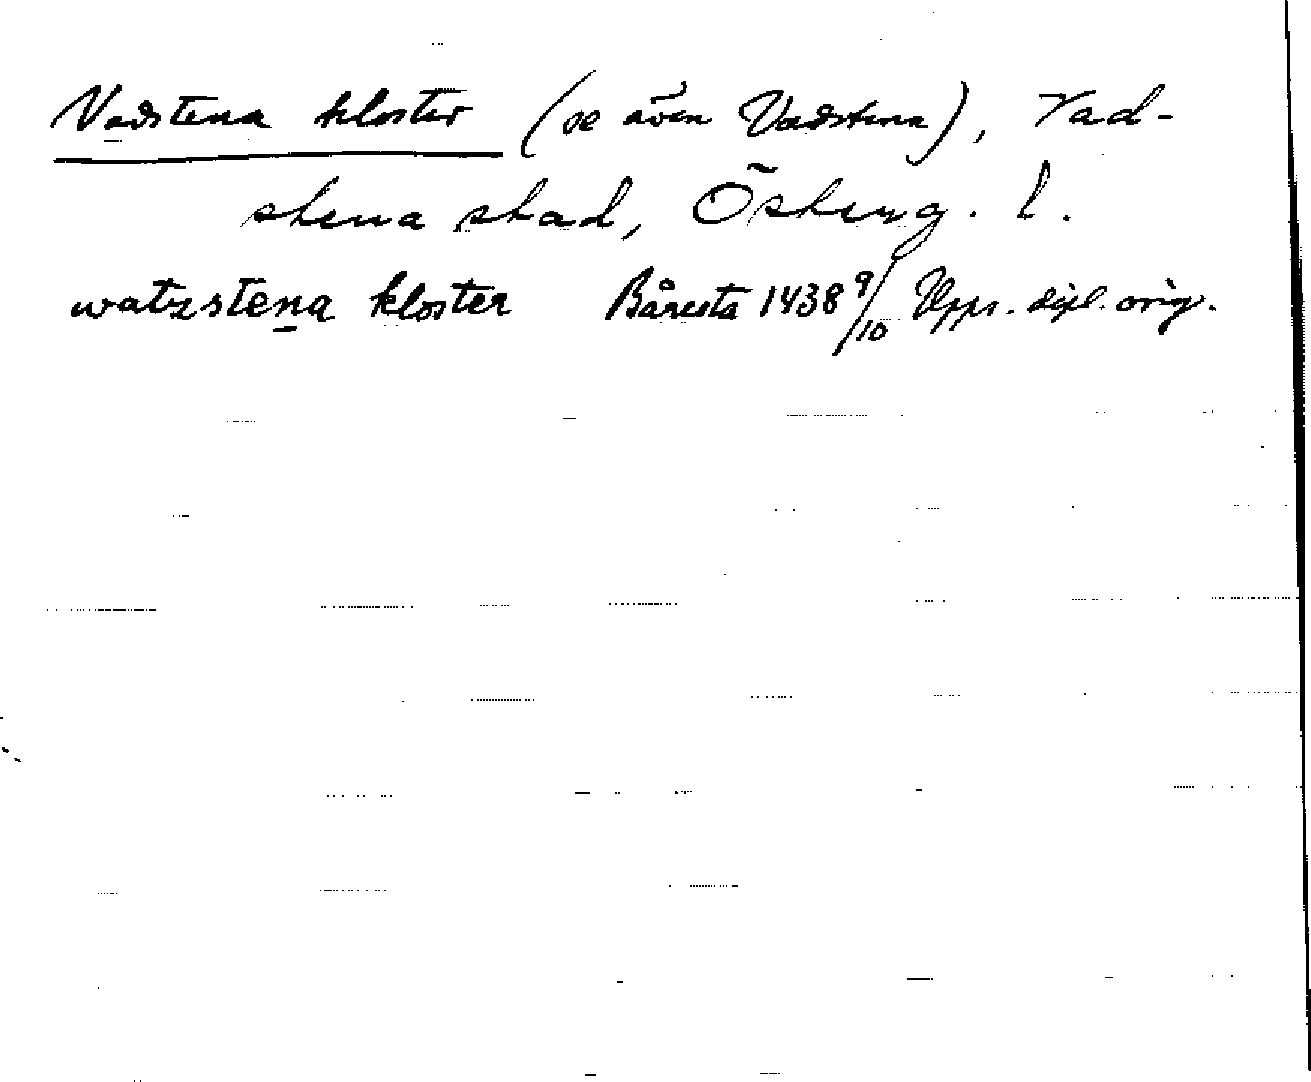 Vadstena kloster (se även Vadstena), Vad-
stena stad, Östeng. l.
watzstena kloster Båresta 1438 9/10 Upps. dipl. orig.